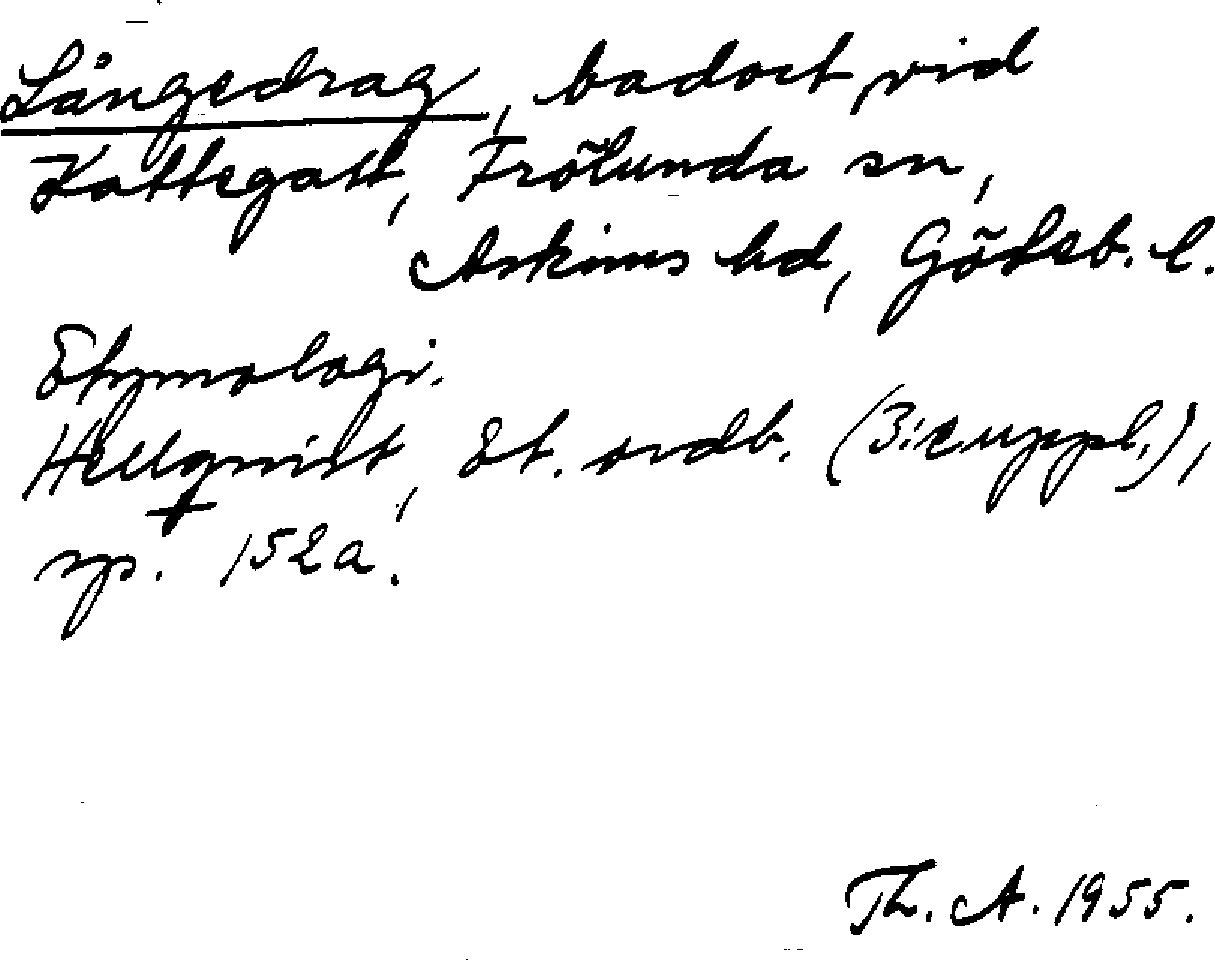 Långedrag, badort vid
Kattegatt, Frölunda sn,
Askims hd, Götab. l.
Etymologi.
Hellqvist, Et. ordb. (3:e uppl.),
sp. 152a.
Th. A. 1955.